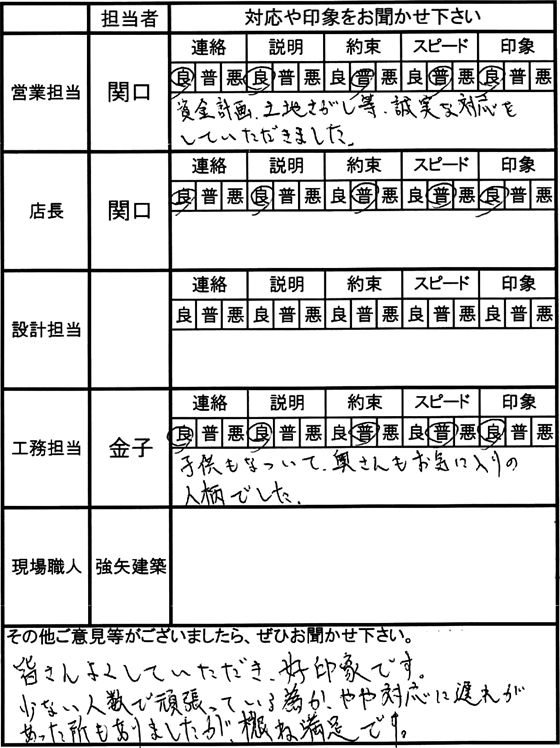 担当者 対応や印象をお聞かせ下さい
連絡 説明 約束 スピード 印象
営業担当 関口 良 普 悪 良 普 悪 良 普 悪 良 普 悪 良 普 悪
資金計画、土地さがし等、誠実な対応を
していただきました。
連絡 説明 約束 スピード 印象
店長 関口 良 普 悪 良 普 悪 良 普 悪 良 普 悪 良 普 悪
連絡 説明 約束 スピード 印象
設計担当 良 普 悪 良 普 悪 良 普 悪 良 普 悪 良 普 悪
連絡 説明 約束 スピード 印象
工務担当 金子 良 普 悪 良 普 悪 良 普 悪 良 普 悪 良 普 悪
子供もなついて、奥さんもお気に入りの
人柄でした。
現場職人 強矢建築
その他ご意見等がございましたら、ぜひお聞かせ下さい。
皆さんよくしていただき、好印象です。
少ない人数で頑張っている為か、やや対応に遅れが
あった所もありましたが、概ね満足です。